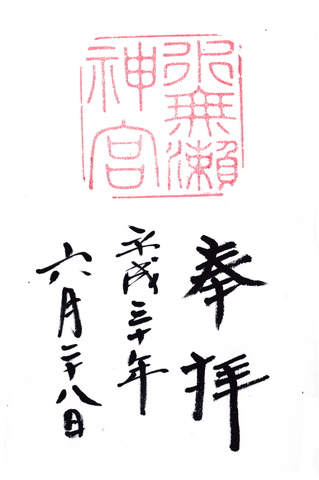 水無瀬
神宮
奉拝
平成三十年
六月二十八日